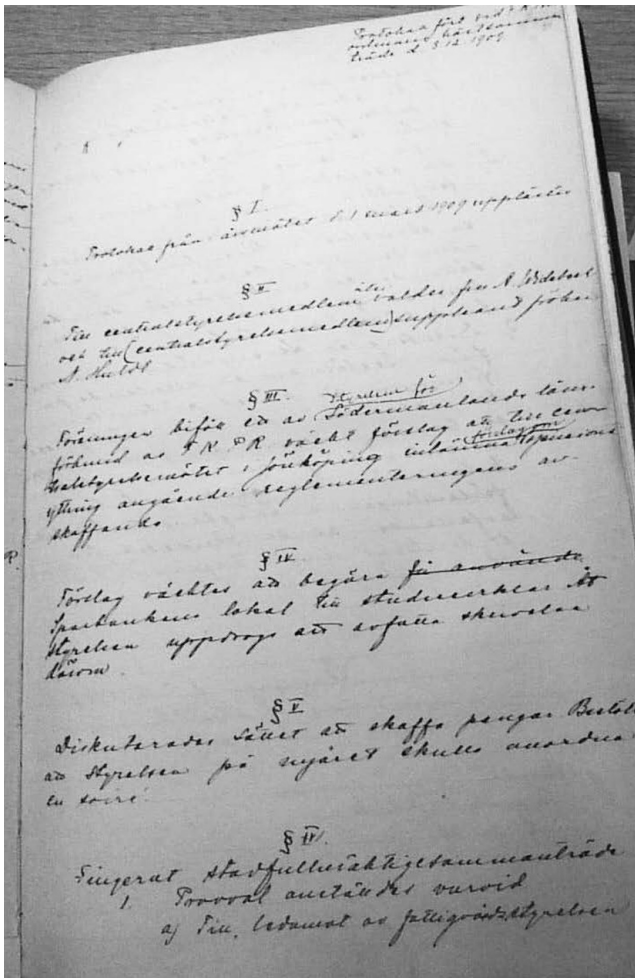 Protokoll fört vid
träde d. 3.12.1909
§ I.
Protokoll från årsmötet d. 1 mars 1909 upplästes
§ II
Till centralstyrelsemedlem valdes frn A. Wideb
och till (centralstyrelsemedlem) suppleant fröken
A. Huldt
§ III.
Styrelsen för
Föreningen biföll ett av Södermanlands läns-
förbund av F K P R väckt förslag att till cen-
tralstyrelsemötet i Jönköping inlämna
yttring angående reglementeringens av-
skaffande
§ IV.
Förslag väcktes att begära få använda
Sparbankens lokal till studiecirklar Åt
styrelsen uppdrogs att avfatta skrivelse
därom.
§ V
Diskuterades sättet att skaffa pengar Beslöt
att styrelsen på nyåret skulle anordna
en soiré.
§ IV.
Fingerat stadsfullmäktigesammanträde
1. Provval anställdes varvid
a) Till ledamot av fattigvårdsstyrelsen